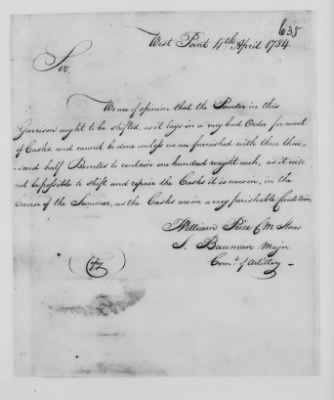 635
West Point 4th April 1784
Sir
We are of opinion that the Powder in this
Garrison ought to be shifted, as it lays in a very bad Order for want
of Casks, and cannot be done unless we are furnished with three thou-
sand half Barrels to contain one hundred weight each, as it will
not be possible to shift and repair the Casks it is now in, in the
course of the Summer, as the Casks are in a very perishable Condition,
William Price C M Stores
S. Bauman Major
Comt. of Artillery